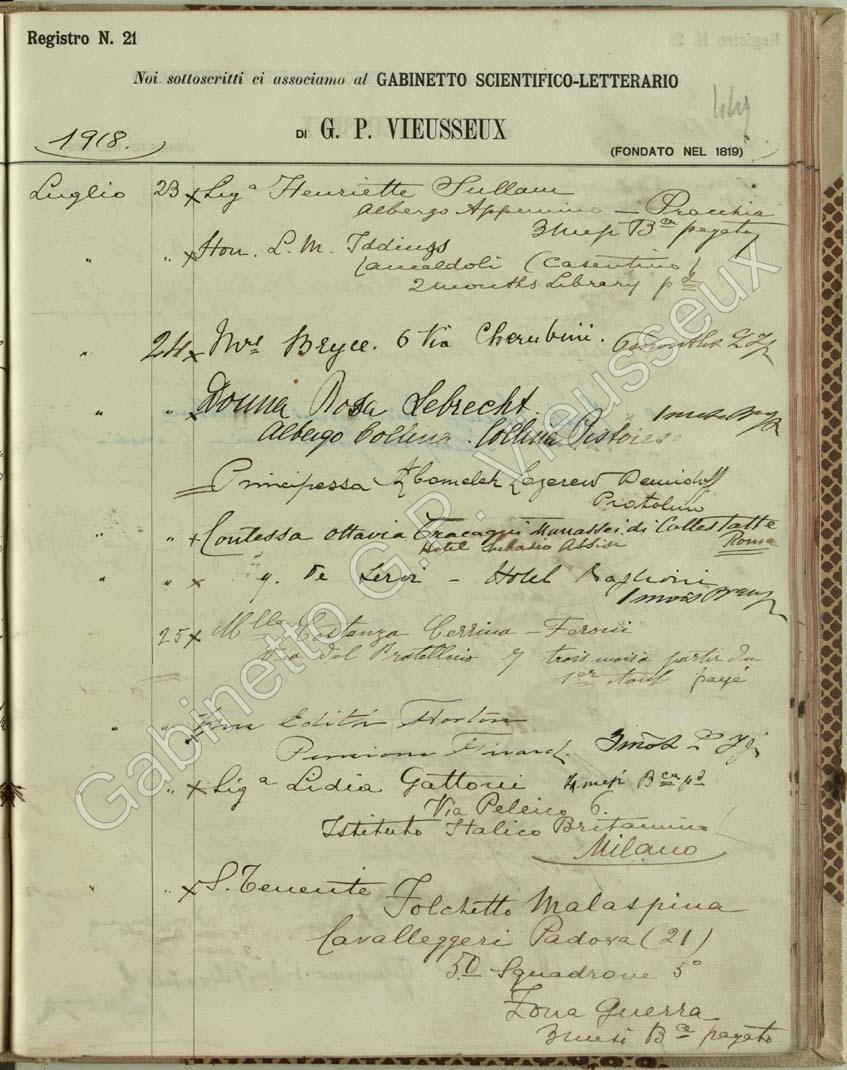 Registro N. 21
Noi sottoscritti ci associamo al GABINETTO SCIENTIFICO-LETTERARIO
449
DI G. P. VIEUSSEUX
1918.
(FONDATO NEL 1819)
Luglio 23 x Sigª Henriette Sullam
Albergo Appennino — Pracchia
3 mesi Bca pagato
" " x Hon. L. M. Iddings
Camaldoli (Casentino)
2 months Library pd
" 24 x Mrs Bryce. 6 Via Cherubini.
" " x Donna Rosa Lebrecht.
Albergo Collina. Collina Pistoiese
Principessa Abamelek Lazarew Demidoff
Pratolino
" " x Contessa Ottavia di Collestatte
Hotel Subasio Assisi Roma
" " x y. De Hotel Baglioni
25 x Mlle Costanza Cerrina-Feroni
Via del Pratellino 7 trois mois à partir du
1er payé
" " x Edith Horton
Pensione
" x Sigª Lidia Gattoni mesi Bca pd
Via 6.
Istituto Italico Britannico
Milano
" " x S. Tenente Folchetto Malaspina
Cavalleggeri Padova (21)
5º Squadrone 5º
Zona Guerra
3 mesi Bca pagato
Gabinetto G.P. Vieusseux